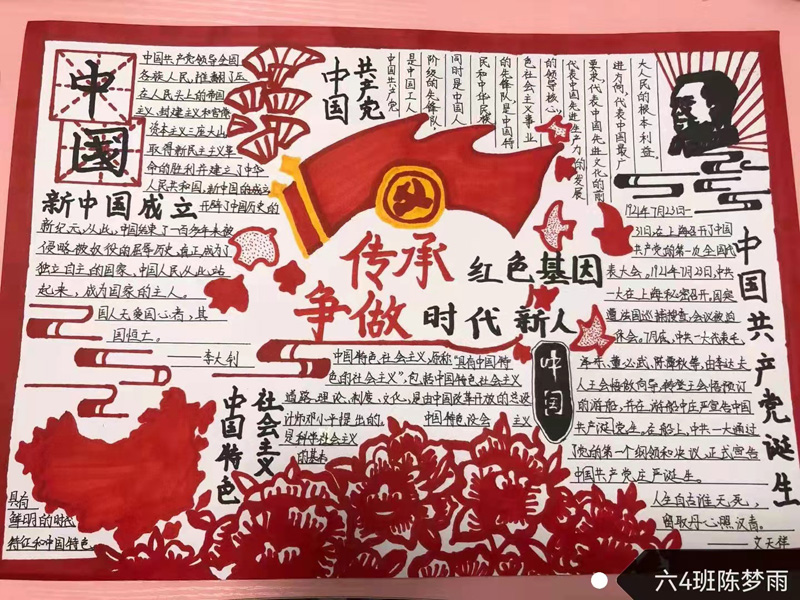 中
国
中国共产党领导全国
各族人民,推翻了压
在人民头上的帝国
主义、封建主义和官僚
资本主义三座大山
取得新民主主义革
命的胜利并建立了中华
人民共和国,新中国的成立
开辟了中国历史的
新中国成立
新纪元,从此,中国结束了一百多年来被
侵略被奴役的屈辱历史,真正成为了
独立自主的国家,中国人民从此站
起来,成为国家的主人。
国人无爱国心者,其
国恒亡。
——李大钊
中国
共产党
中国共产党
是中国工人
阶级的先锋队,
同时是中国人
民和中华民族
的先锋队,是中国特
色社会主义事业
的领导核心,
代表中国先进生产力的发展
要求,代表中国先进文化的前
进方向,代表中国最广
大人民的根本利益.
传承 红色基因
争做 时代 新人
1921年7月23日—
31日,在上海召开了中国
共产党的第一次全国代
表大会。1921年7月23日,中共
一大在上海秘密召开。因突
遭法国巡捕搜查,会议被迫
休会。7月底,中共一大代表毛
泽东、董必武、陈潭秋等,由李达夫
人王会悟做向导,转登王会悟预订
的游船,并在游船中庄严宣告中国
共产党诞生。在船上,中共一大通过
了党的第一个纲领和决议,正式宣告
中国共产党庄严诞生。
中国共产党诞生
人生自古谁无死,
留取丹心照汗青。
——文天祥
中国
社会主义
中国特色
中国特色社会主义,原称“具有中国特
色的社会主义”,包括中国特色社会主义
道路、理论、制度、文化,是由中国改革开放的总设
计师邓小平提出的。 中国特色 社会 主义
是科学社会主义
的基本
具有
鲜明的时代
特征和中国特色
六4班陈梦雨